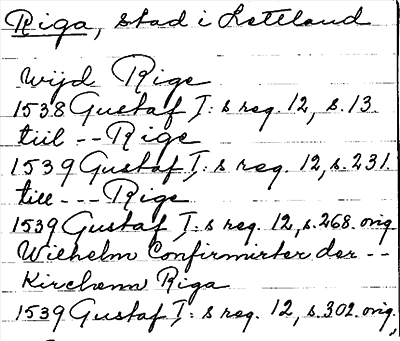 Riga, stad i Lettland
wijd Rige
1538 Gustaf I: s reg. 12, s. 13.
tiil -- Rige
1539 Gustaf I: s reg. 12, s. 231.
till --- Rige
1539 Gustaf I: s reg. 12, s. 268. orig.
Wilhelm Confirmirter der --
Kirchenn Riga
1539 Gustaf I: s reg. 12, s. 302. orig.,